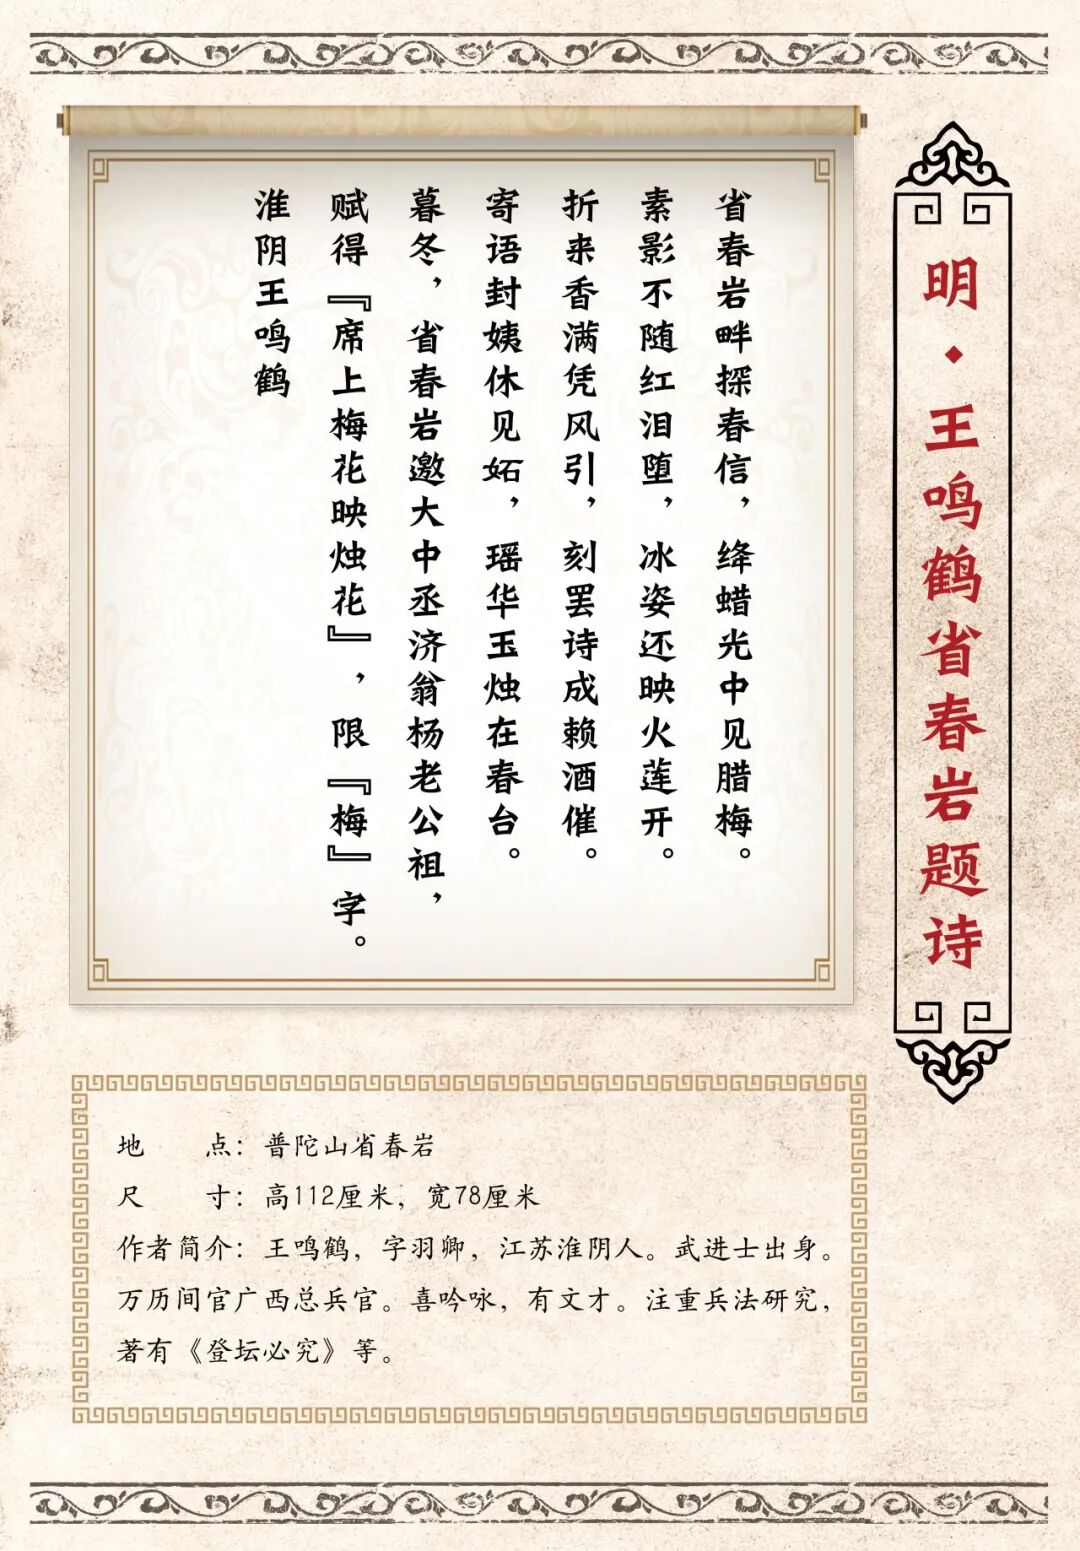 明·王鸣鹤省春岩题诗
省春岩畔探春信，绛蜡光中见腊梅。
素影不随红泪堕，冰姿还映火莲开。
折来香满凭风引，刻罢诗成赖酒催。
寄语封姨休见妬，瑶华玉烛在春台。
暮冬，省春岩邀大中丞济翁杨老公祖，
赋得『席上梅花映烛花』，限『梅』字。
淮阴王鸣鹤
地　　点：普陀山省春岩
尺　　寸：高112厘米，宽78厘米
作者简介：王鸣鹤，字羽卿，江苏淮阴人。武进士出身。
万历间官广西总兵官。喜吟咏，有文才。注重兵法研究，
著有《登坛必究》等。